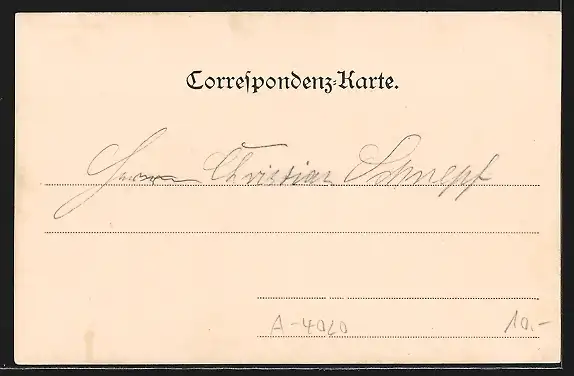 Correſpondenz-Karte.
Herrn Christian Schnepf
A-4020 10.-